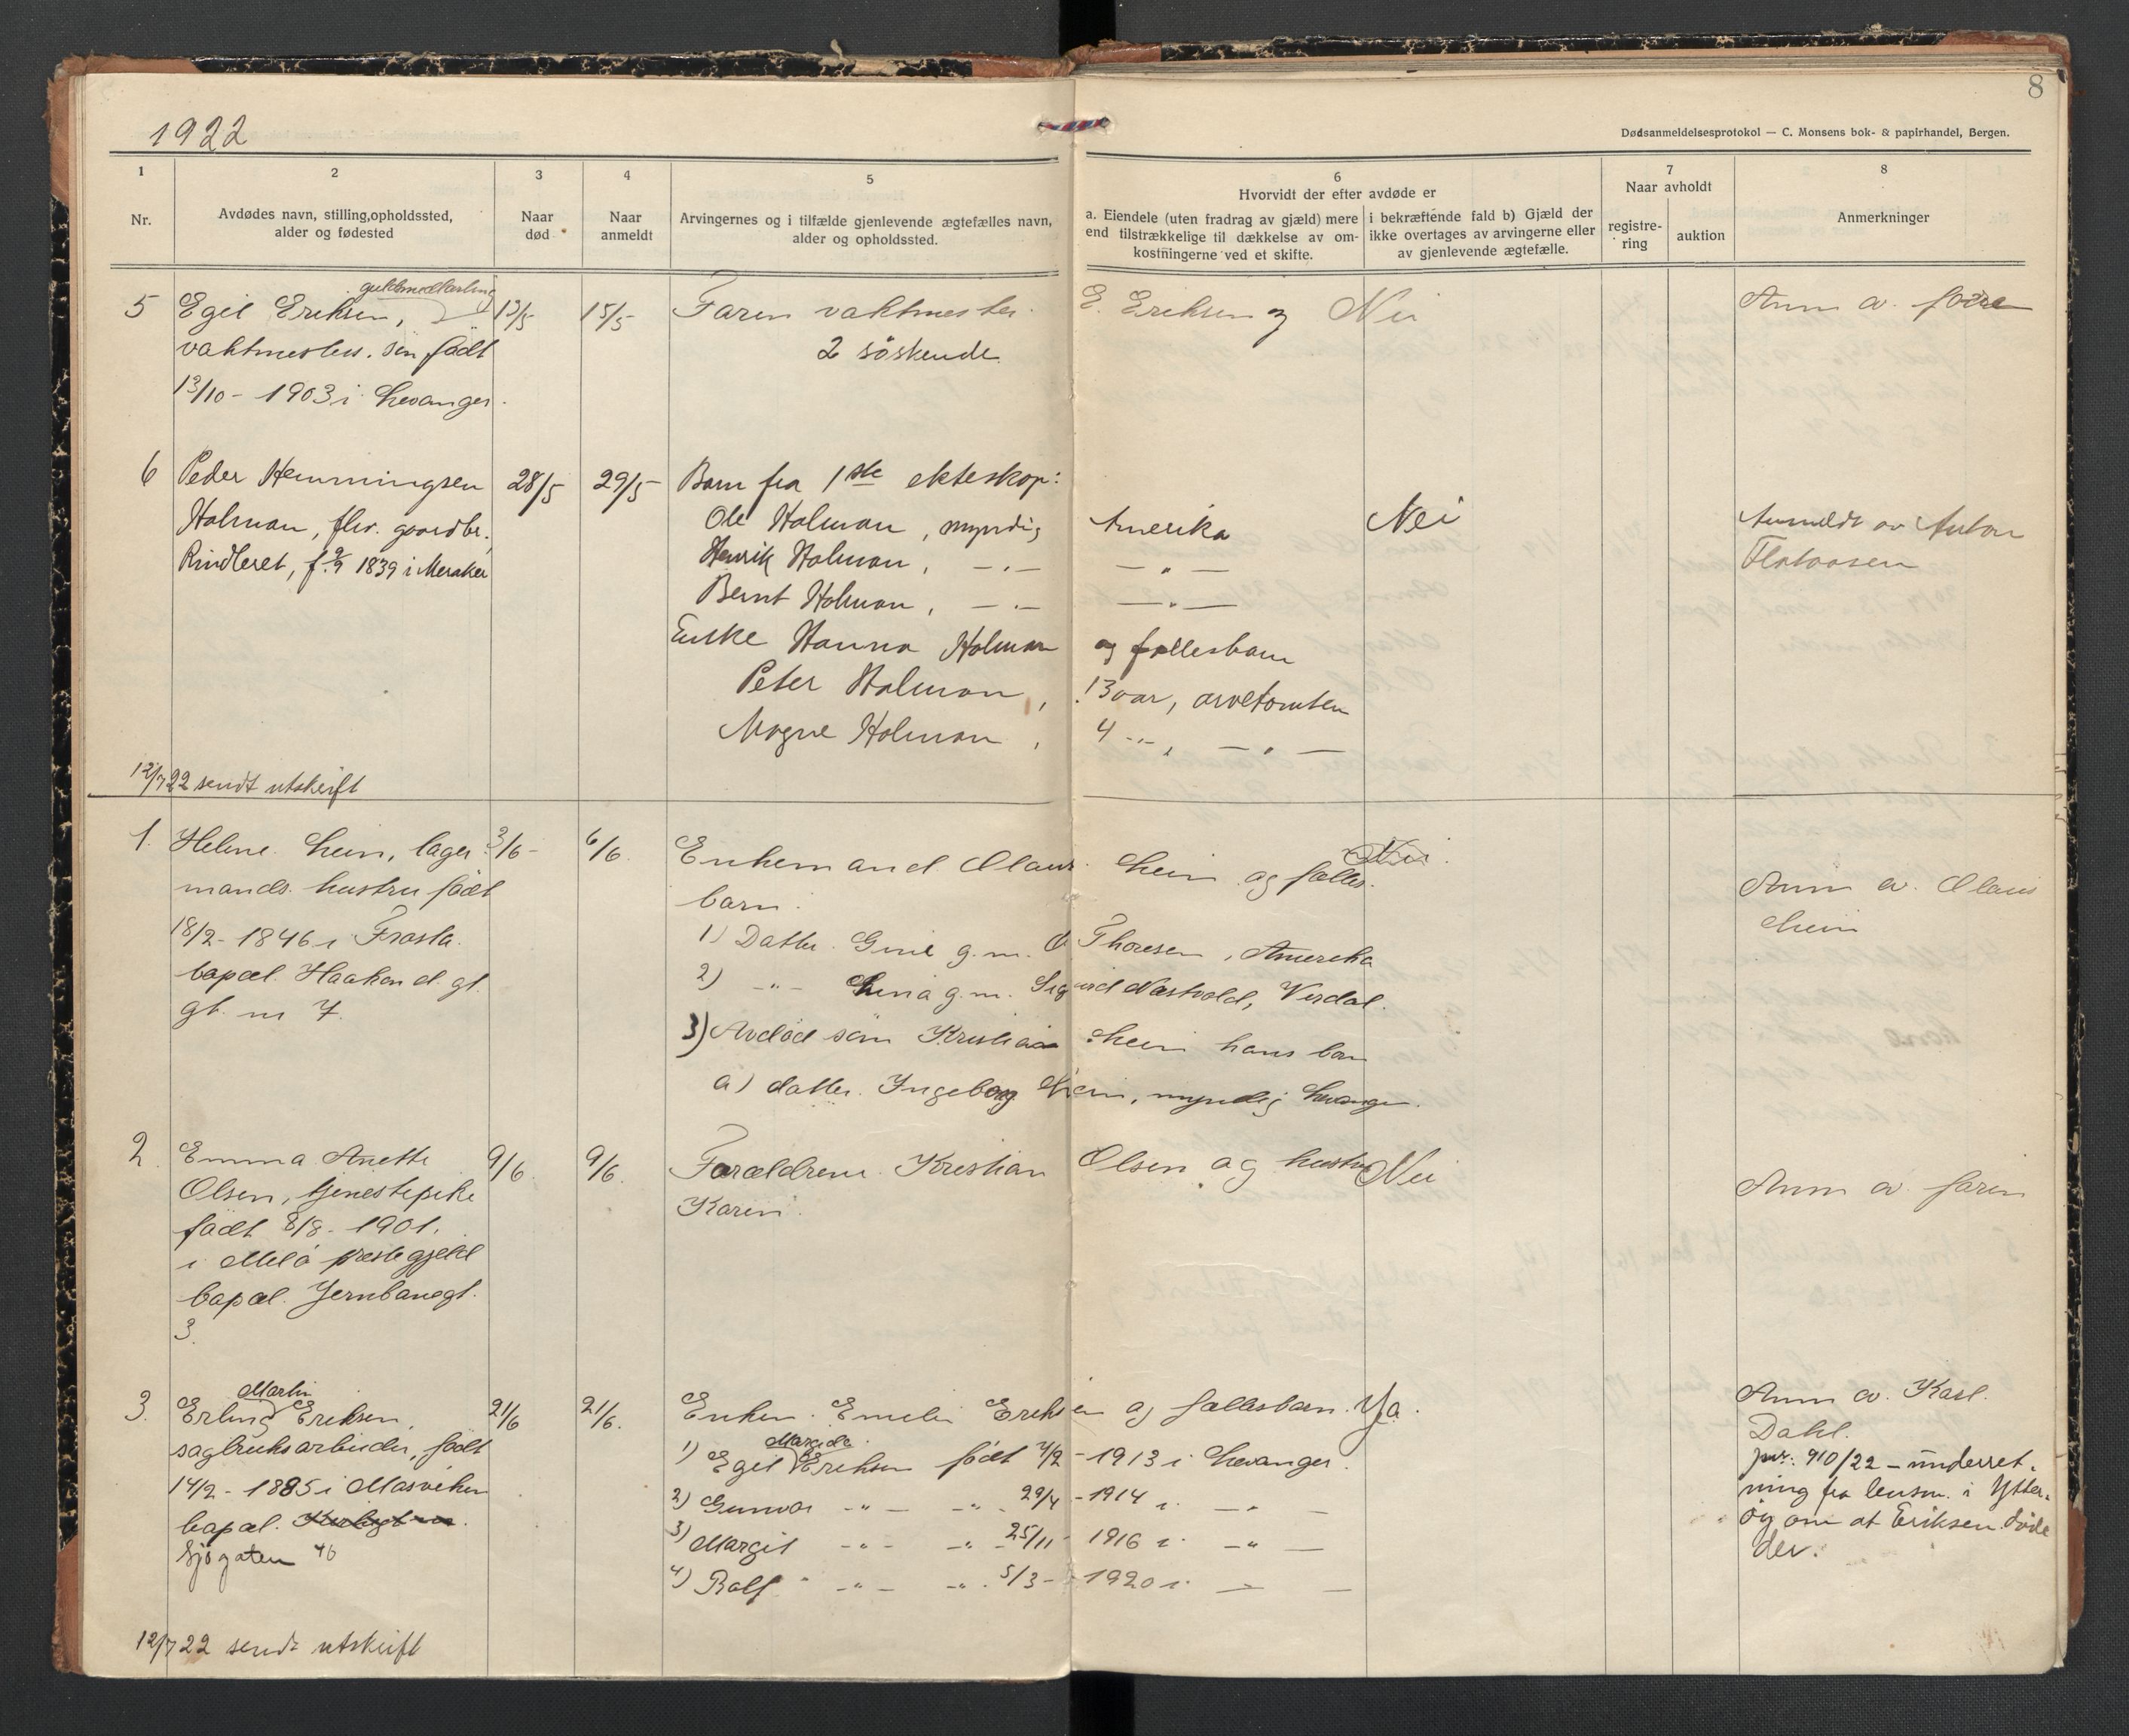 8
1922
Dødsanmeldelsesprotokol — C. Monsens bok- & papirhandel, Bergen.
1 2 3 4 5 6 7 8
Nr.
Avdødes navn, stilling, opholdssted,
alder og fødested
Naar
død
Naar
anmeldt
Arvingernes og i tilfælde gjenlevende ægtefælles navn,
alder og opholdssted.
Hvorvidt der efter avdøde er
a. Eiendele (uten fradrag av gjæld) mere
end tilstrækkelige til dækkelse av om-
kostningerne ved et skifte.
i bekræftende fald b) Gjæld der
ikke overtages av arvingerne eller
av gjenlevende ægtefælle.
Naar avholdt
registre-
ring
auktion
Anmerkninger
5 Egil Eriksen, 13/5 15/5 Faren vaktmester E. Eriksen og Nei Anm av
vaktmesters. sön födt 2 söskende
13/10 - 1903 i Levanger.
6 Peder Hemmingsen 28/5 29/5 Barn fra 1ste ekteskap:
Holman, fhv. gaardbr. Ole Holman, myndig Amerika Nei Anmeldt av Anton
Rindleret, f. 2/9 1839 i Meraker Henrik Holman, —"— —"— Flotaasen
Bernt Holman, —"— —"—
Enke Hanna Holman og fællesbarn
Peter Holman, 13 aar, arvetomten
Magne Holman, 4 -"-, —"—
12/7 22 sendt utskrift
1. Helene Lein, lager- 3/6- 6/6. Enkemand Olaus Lein og fælles- Nei.
mands hustru födt barn. Anm av. Olaus
18/2 - 1846 i Frosta. 1) Datter Gine g.m. O Thoresen, Amerika Lein
bopæl. Haakon d. gt. 2) -"- Lina g.m. Sigurd Næstvold, Verdal.
gt. nr 7. 3) Avdöd sön Kristian Lein hans barn
a) datter. Ingeborg Lein, myndig Levanger.
2. Emma Anette 9/6. 9/6. Forældrene Kristian Olsen og hustru Nei Anm av faren
Olsen, tjenestepike Karen.
födt 8/8 - 1901.
i Melö prestegjeld
bopæl. Jernbanegt.
3.
Martin
3. Erling Eriksen, 21/6 21/6. Enken Emelie Eriksen og fællesbarn. Ja. Anm av. Karl
sagbruksarbeider, födt Dahl.
1) Egil Eriksen födt 4/2 - 1913 i Levanger. jnr: 910/22 - underret-
14/2 - 1885 i Mosviken 2) Gunvor -"- -"- 29/4 - 1914 i —"— ning fra lensm. i Ytter-
bopæl. 3) Margit -"- -"- 25/11 - 1916 i —"— öy om at Eriksen döde
Sjögaten 46 4) Rolf -"- -"- 5/3 - 1920 i —"— der.
12/7 22 sendt utskrift